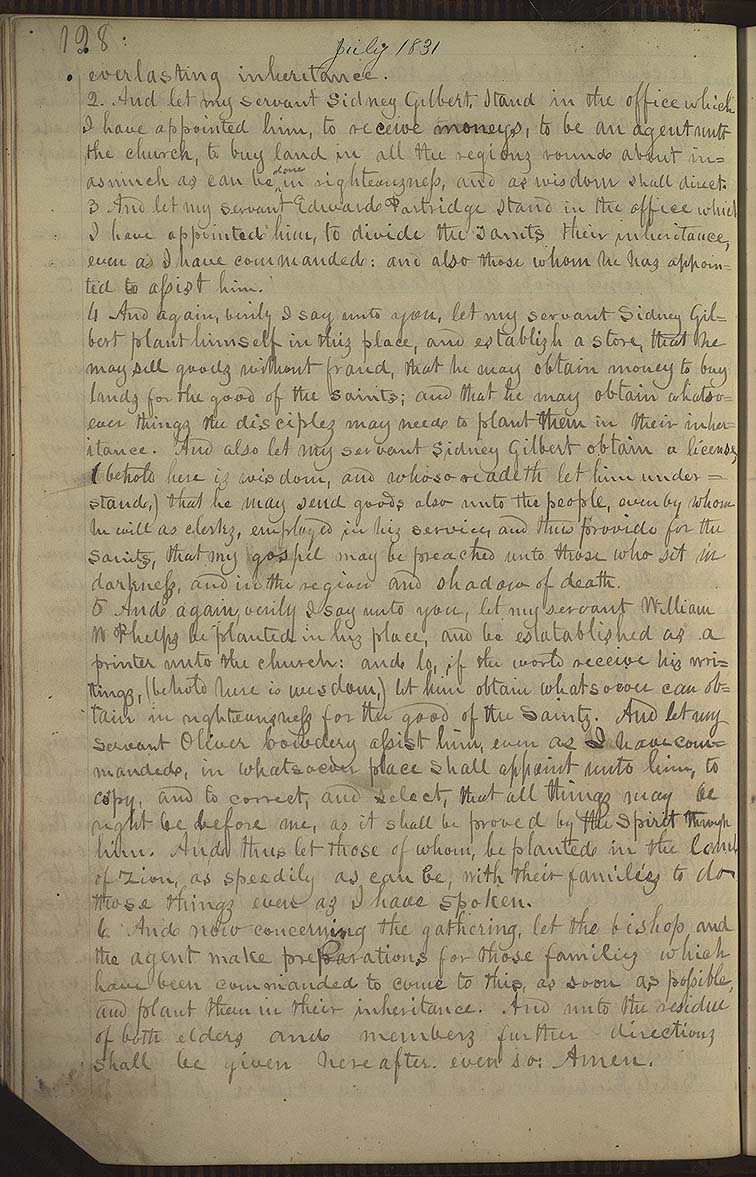 128:
July 1831
everlasting inheritance.
2. And let my servant Sidney Gilbert, stand in the office which
I have appointed him, to receive moneys, to be an agent unto
the church, to buy land in all the regions round about in=
asmuch as can be done in righteousness, and as wisdom shall direct.
3 And let my servant Edward Partridge stand in the office which
I have appointed him, to divide the saints their inheritance,
even as I have commanded: and also those whom he has appoin=
ted to assist him.
4 And again, verily I say unto you, let my servant Sidney Gil=
bert plant himself in this place, and establish a store, that he
may sell goods without fraud, that he may obtain money to buy
lands for the good of the saints; and that he may obtain whatso=
ever things the disciples may need to plant them in their inher=
itance. And also let my servant Sidney Gilbert obtain a license,
(behold here is wisdom, and whoso readeth let him under=
stand,) that he may send goods also unto the people, even by whom
he will as clerks, employed in his service, and thus provide for the
saints, that my gospel may be preached unto those who sit in
darkness, and in the region and shadow of death.
5 And again, verily I say unto you, let my servant William
W Phelps be planted in his place, and be estatablished as a
printer unto the church: and lo, if the world receive his wri=
tings, (behold here is wisdom,) let him obtain whatsoever can ob=
tain in righteousness for the good of the saints. And let my
servant Oliver Cowdery assist him, even as I have com=
manded, in whatsoever place shall appoint unto him, to
copy, and to correct, and select, that all things may be
right be before me, as it shall be proved by the Spirit through
him. And thus let those of whom, be planted in the land
of Zion, as speedily as can be, with their families to do
those things even as I have spoken.
6 And now concerning the gathering, let the bishop, and
the agent make preparations for those families which
have been commanded to come to this, as soon as possible,
and plant them in their inheritance. And unto the residue
of both elders and members further directions
shall be given hereafter. even so: Amen.